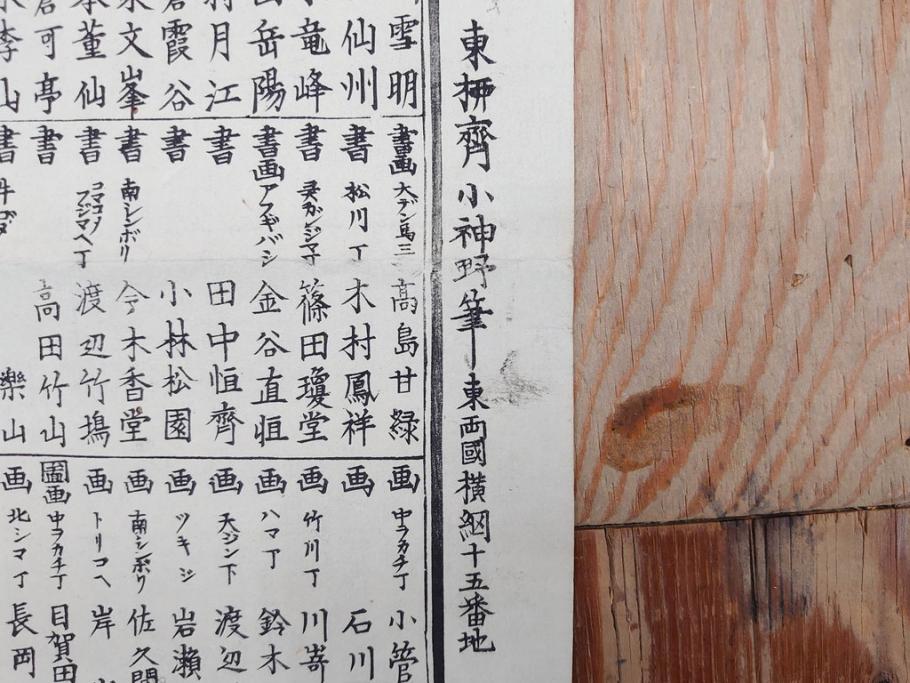 東柳齊小神野筆 東両國横網十五番地
雪明
仙州
竜峰
岳陽
月江
霞谷
文峯
董仙
可亭
李山
書画 大デン馬三 高島甘緑
書 松川丁 木村鳳祥
書 篠田瓊堂
書画 アフギバシ 金谷直恒
書 田中恒齊
書 小林松園
書 南シンボリ 今木香堂
書 渡辺竹塢
書 高田竹山
書 樂山
画 中ヲカチ丁 小管
画 石川
画 竹川丁 川嵜
画 ハマ丁 鈴木
画 天ジン下 渡辺
画 ツキジ 岩瀬
画 南シンボリ 佐久間
画 トリコヘ 岸
圖画 中ヲカチ丁 目賀田
画 北シマ丁 長岡